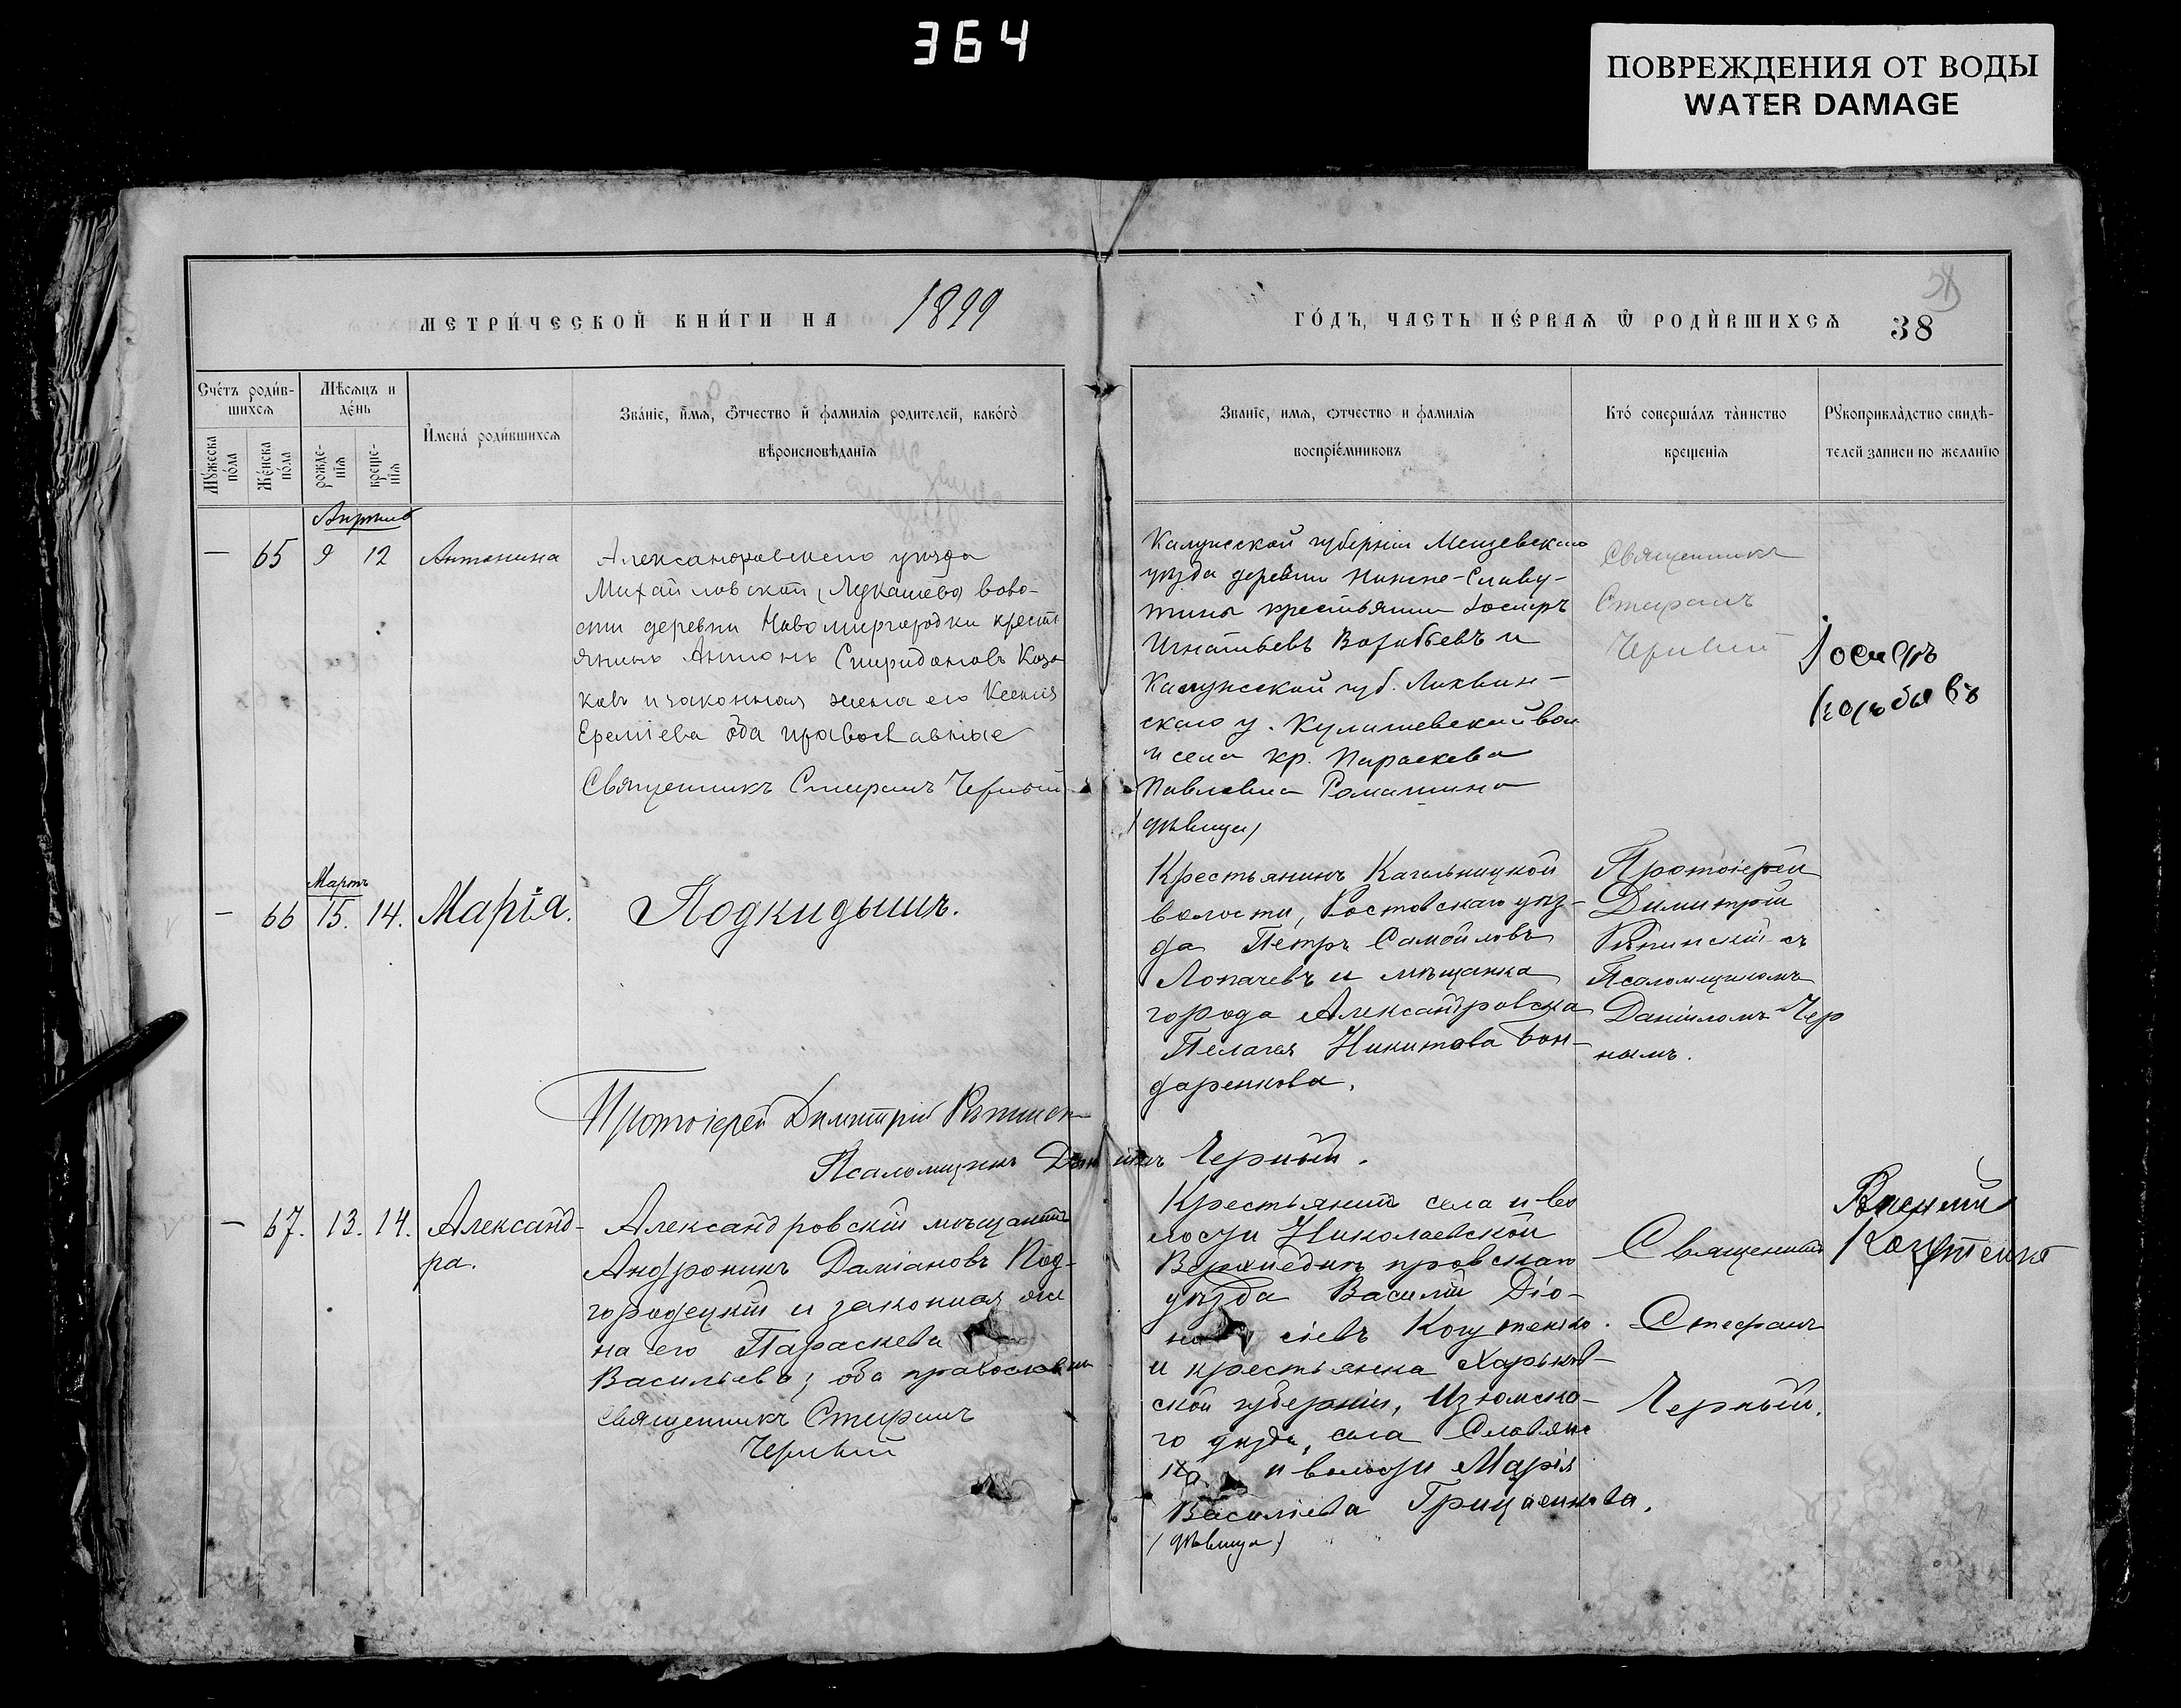 364
ПОВРЕЖДЕНИЯ ОТ ВОДЫ
WATER DAMAGE
МЕТРИ́ЧЕСКОЙ КНИ́ГИ НА 1899
ГО́ДЪ, ЧАСТЬ ПЕ́РВАѦ Ѿ РОДИ́ВШИХСѦ 38
Сче́тъ роди́в-
шихсѧ
Мꙋжеска
по́ла
Же́нска
по́ла
Мѣсѧцъ и
де́нь
рожде-
нїѧ
креще-
нїѧ
И҆мена́ роди́вшихсѧ
Зва́нїе, и҆́мѧ, ѻ҆́тчество и҆ фамилїѧ родителей, како́гѡ
вѣроисповѣданїѧ
Званїе, имѧ, ѻтчество и фамилїѧ
воспрїе́мниковъ
Кто́ соверша́лъ та́инство
крещенїѧ
Рꙋкоприкла́дство свидѣ-
телей записи по желанїю
Апрѣль
— 65 9 12 Антонина
Александровскаго уѣзда
Михайловской (Лукашево) воло-
сти деревни Новомиргородки крестъ
янинъ Антонъ Спиридоновъ Каза
ковъ и законная жена его Ксенія
Ереміева оба православные
Священникъ Стефанъ Черный
Калужской губерніи Мещевскаго
уѣзда деревни Нижне-Славу-
тины крестьянин Іосифъ
Игнатьевъ Воробьевъ и
Калужской губ. Лихвин-
скаго у. Кулишевской вол
и села кр. Параскева
Павловна Ромашина
(дѣвица)
Священникъ
Стефанъ
Черный
Іосифъ
Мартъ
— 66 15. 14. Марія.
Подкидышъ.
Крестьянинъ Кагальницкой
волости, Ростовскаго уѣз-
да Петръ Самойловъ
Лопачевъ и мѣщанка
города Александровска
Пелагея Никитова Бон-
даренкова.
Протоіерей
Димитрій
съ
Псаломщикомъ
Даніиломъ Чер
нымъ.
Протоіерей Димитрій
Псаломщикъ Даніилъ Черный.
— 67. 13. 14. Александ-
ра.
Александровскій мѣщанинъ
Андроникъ Даміановъ Под-
городецкій и законная же
на его Параскева
Васильева; оба православн
Священникъ Стефанъ
Черный
Крестьянинъ села и во
лости Николаевской
Верхнеднѣпровскаго
уѣзда Василій Діо-
нисіевъ Когутенко.
и крестьянка Харьков-
ской губерніи, Изюмска-
го уѣзда, села Славянс
ка и волости Марія
Василіева Грицаенкова.
(дѣвица)
Священникъ
Стефанъ
Черный.
Василий
Когутенко